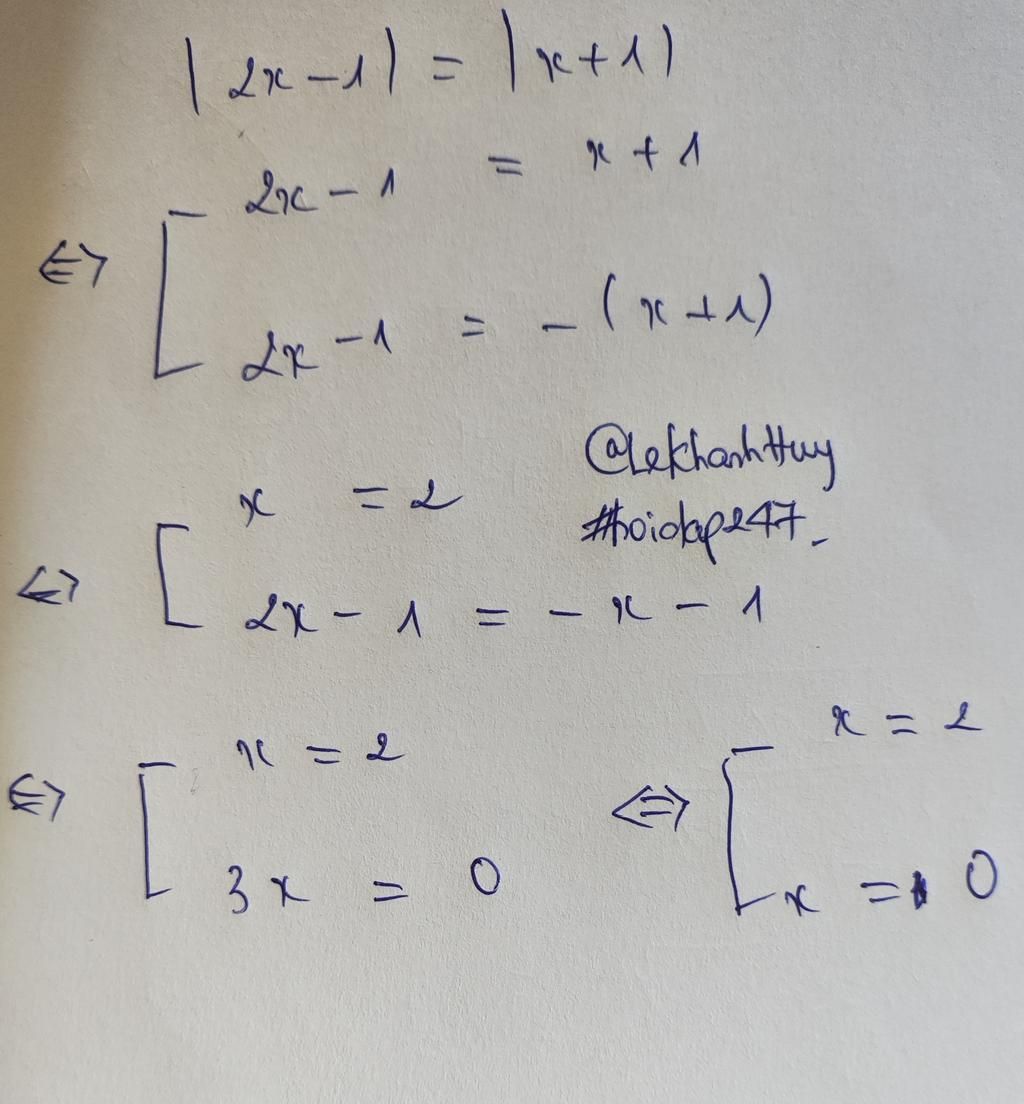 |2x-1| = |x+1|
2x-1 = x+1
⇔ [
2x-1 = -(x+1)
@LeKhanhHuy
x = 2
#hoidap247.
⇔ [
2x-1 = -x-1
x = 2
x = 2
⇔ [
⇔ [
3x = 0
x = 0